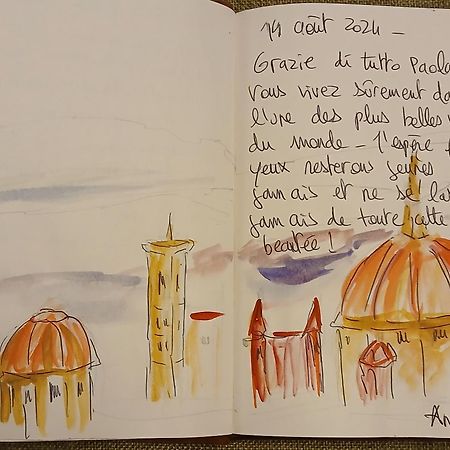 19 août 2024 -
Grazie di tutto Paola
vous vivez sûrement da
l'une des plus belles v
du monde - J'espère
yeux resterons jeunes
jamais et ne se las
jamais de toute cette
beautée !
An